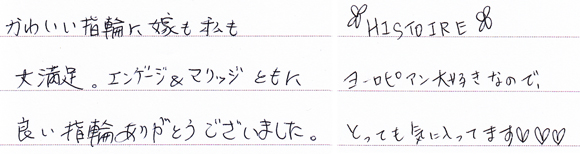 かわいい指輪に嫁も私も
大満足。エンゲージ&マリッジともに
良い指輪ありがとうございました。
HISTOIRE
ヨーロピアン大好きなので、
とっても気に入ってます♡♡♡